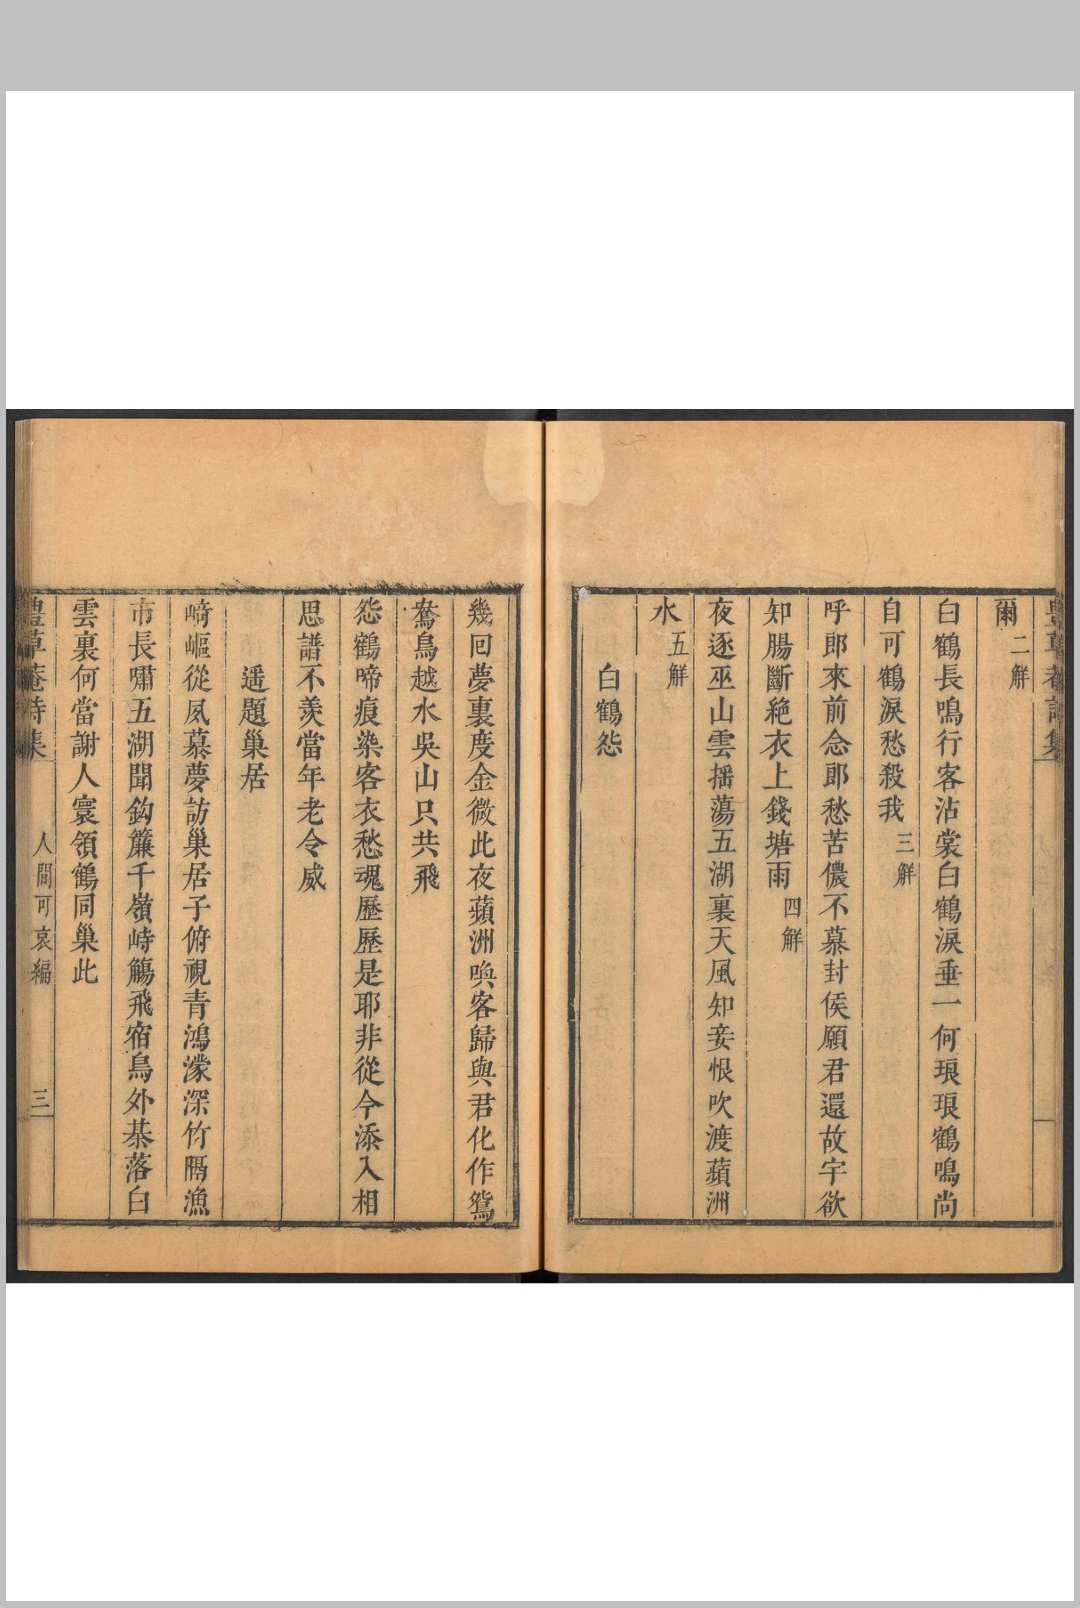 爾二解
白鶴長鳴行客沾裳白鶴淚垂一何琅琅鶴鳴尚
自可鶴淚愁殺我三解
呼郎來前念郎愁苦儂不慕封侯願君還故宇欲
知腸斷絶衣上錢塘雨四解
夜逐巫山雲搖蕩五湖裏天風知妾恨吹渡蘋洲
水五解
白鶴怨
幾回夢裏度金微此夜蘋洲喚客歸與君化作鴛
鴦鳥越水吳山只共飛
怨鶴啼痕染客衣愁魂歷歷是耶非從今添入相
思譜不羨當年老令威
遥題巢居
﨑嶇從夙慕夢訪巢居子俯視青鴻濛深竹隔漁
市長嘯五湖聞鈎簾千嶺峙觴飛宿鳥外棊落白
雲裏何當謝人寰領鶴同巢此
豊草菴詩集
人間可哀編
三